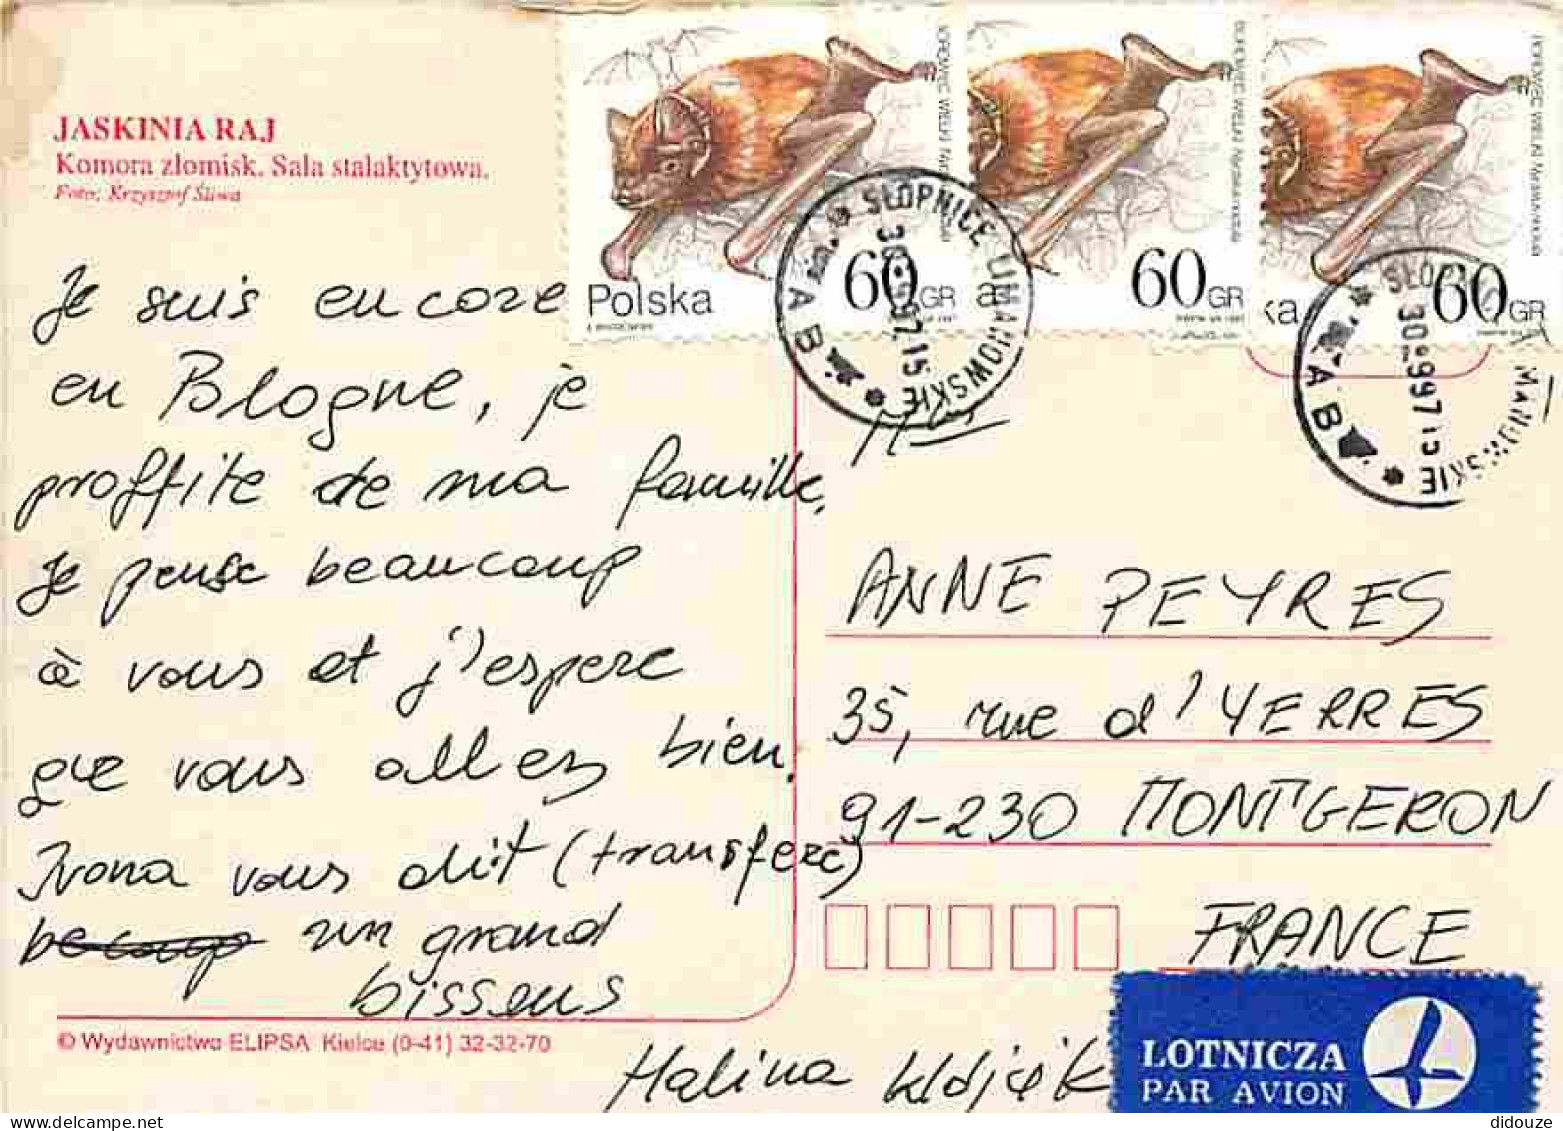 JASKINIA RAJ
Komora złomisk. Sala stalaktytowa.
Foto: Krzysztof Śliwa
Je suis encore
en Pologne, je
proffite de ma famille,
Je pense beaucoup
à vous et j'espere
que vous allez bien.
Ivona vous dit (transferé)
beacoup un grand
bissous
© Wydawnictwo ELIPSA Kielce (0-41) 32-32-70
Halina
Polska
60 GR
a
60 GR
ka
60 GR
BOROWIEC WIELKI
BOROWIEC WIELKI
SŁOPNICE LIMANOWSKIE
30-9 97 15
AB
30-9 97 15
AB
ANNE PEYRES
35, rue d'YERRES
91-230 MONTGERON
FRANCE
LOTNICZA
PAR AVION
didouze